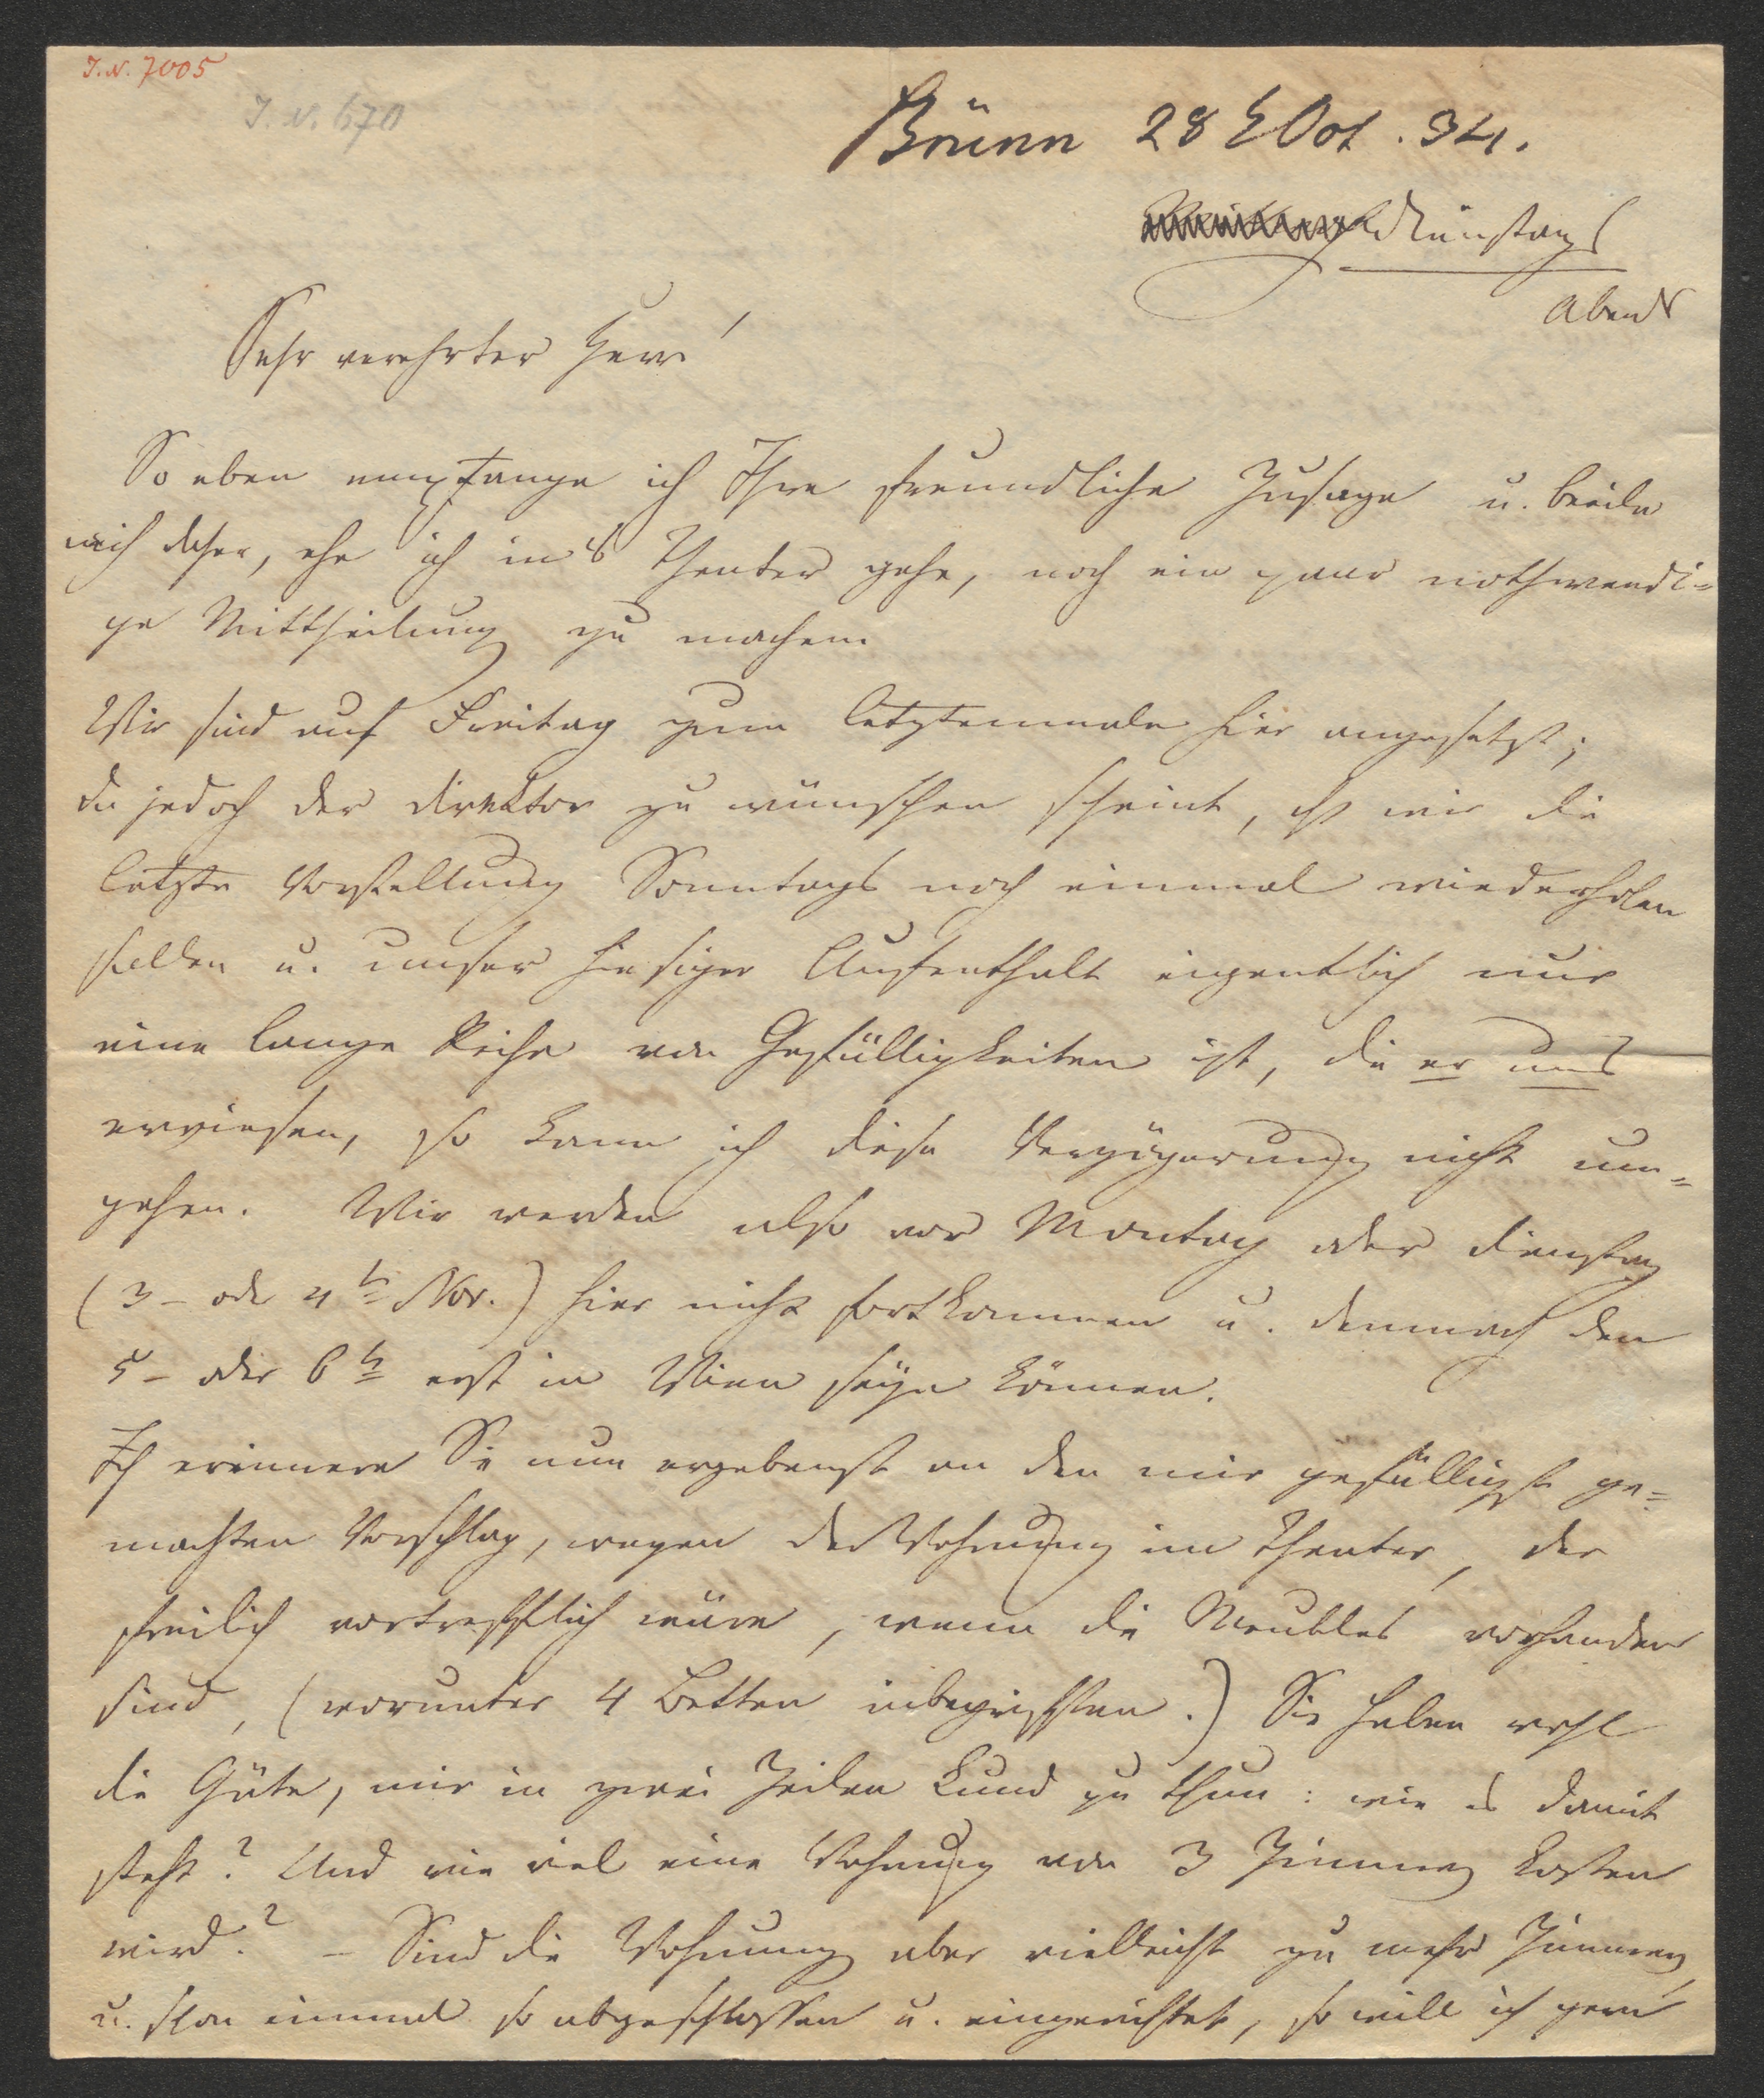 I.N. 7005
I.N. 670
Brünn 28 t Oct. 34.
Dienstags
Abends
Sehr verehrter Herr!
So eben empfange ich Ihre freundliche Zusage u. beeile
mich daher, ehe ich in's Theater gehe, noch ein paar nothwendi=
ge Mittheilung zu machen.
Wir sind auf Freitag zum letztenmale hier angesetzt;
da jedoch der Direktor zu wünschen scheint, daß wir die
letzte Vorstellung Sonntags noch einmal wiederholen
sollen u. unser hiesiger Aufenthalt eigentlich nur
eine lange Reihe von Gefälligkeiten ist, die er uns
erwiesen, so kann ich diese Verzögerung nicht um=
gehen. Wir werden also vor Montag oder Dienstag
(3- oder 4t Nov.) hier nicht fortkommen u. demnach den
5- oder 6t erst in Wien seyn können.
Ich erinnere Sie nun ergebenst an den mir gefälligst ge=
machten Vorschlag, wegen der Wohnung im Theater, der
freilich vortrefflich wäre, wenn die Meubles vorhanden
sind, (worunter 4 Betten inbegriffen.) Sie haben wohl
die Güte, mir in zwei Zeilen kund zu thun: wie es damit
steht? Und wie viel eine Wohnung von 3 Zimmern kosten
wird? - Sind die Wohnung aber vielleicht zu mehr Zimmern
u. schon einmal so abgeschlossen u. eingerichtet, so will ich gern